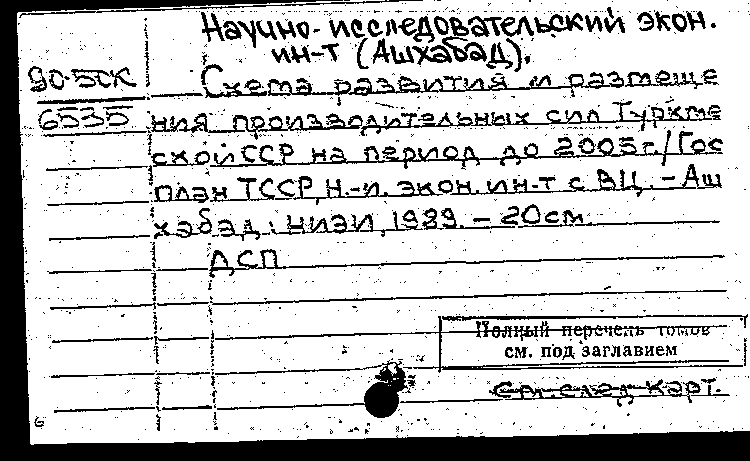 Научно-исследовательский экон.
ин-т (Ашхабад).
90-5СК Схема развития и размеще
6535 ния производительных сил Туркме
ской ССР на период до 2005 г. / Гос
план ТССР, Н.-и. экон. ин-т с ВЦ. - Аш
хабад: НИЭИ, 1989. - 20 см.
ДСП
Полный перечень томов
см. под заглавием
См. след. карт.
6